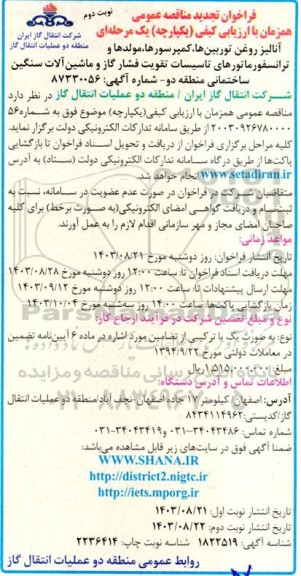 نوبت دوم
شرکت انتقال گاز ایران
منطقه دو عملیات انتقال گاز
فراخوان تجدید مناقصه عمومی
همزمان با ارزیابی کیفی (یکپارچه) یک مرحله‌ای
آنالیز روغن توربین‌ها،کمپرسورها،مولدها و
ترانسفورماتورهای تاسیسات تقویت فشار گاز و ماشین‌آلات سنگین
ساختمانی منطقه دو- شماره آگهی: ۸۷۳۳۰۵۶
شــرکت انتقال گاز ایران / منطقه دو عملیات انتقال گاز در نظر دارد
مناقصه عمومی همزمان با ارزیابی کیفی(یکپارچه) موضوع فوق به شماره۵۶
۲۰۰۳۰۹۲۶۷۸۰۰۰۰ از طریق سامانه تدارکات الکترونیکی دولت برگزار نماید.
کلیه مراحل برگزاری فراخوان از دریافت و تحویل اسناد فراخوان تا بازگشایی
پاکت‌ها از طریق درگاه سامانه تدارکات الکترونیکی دولت (ستاد) به آدرس
www.setadiran.ir انجام خواهد شد.
متقاضیان شرکت در فراخوان در صورت عدم عضویت در سـامانه، نسبت به
ثبت‌نـام و دریافت گواهـی امضای الکترونیکی(به صورت برخط) برای کلیه
صاحبان امضای مجاز و مهر سازمانی اقدام لازم را به عمل آورند.
مواعد زمانی:
تاریخ انتشار فراخوان: روز دوشنبه مورخ ۱۴۰۳/۰۸/۲۱
مهلت دریافت اسناد فراخوان تا: ساعت ۱۲:۰۰ روز دوشنبه مورخ ۱۴۰۳/۰۸/۲۸
مهلت ارسال پیشنهادات تا: ساعت ۱۲:۰۰ روز دوشنبه مورخ ۱۴۰۳/۰۹/۱۲
زمان بازگشایی پاکت‌ها: ساعت ۱۴:۰۰ روز سه‌شنبه مورخ ۱۴۰۳/۱۰/۰۴
نوع و مبلغ تضمین شرکت در فرآیند ارجاع کار:
نوع: به صورت یک یا ترکیبی از تضامین مورد اشاره در ماده ۶ آیین‌نامه تضمین
در معاملات دولتی مورخ ۱۳۹۴/۹/۲۲
اطلاعات تماس و آدرس دستگاه:
آدرس: اصفهان کیلومتر ۱۷ جاده اصفهان نجف آباد منطقه دو عملیات انتقال
گاز/کدپستی: ۸۴۳۴۱۱۴۹۶۲
شماره تماس: ۳۴۰۴۳۴۸۶-۰۳۱ و ۳۴۰۴۳۴۱۹-۰۳۱
ضمنا آگهی فوق در سایت‌های زیر قابل مشاهده می‌باشد:
WWW.SHANA.IR
http://district2.nigtc.ir
http://iets.mporg.ir
تاریخ انتشار نوبت اول: ۱۴۰۳/۰۸/۲۱
تاریخ انتشار نوبت دوم: ۱۴۰۳/۰۸/۲۲
شناسه آگهی: ۱۸۲۲۵۱۹ شناسه نوبت چاپ: ۲۲۳۶۴۱۴
روابط عمومی منطقه دو عملیات انتقال گاز